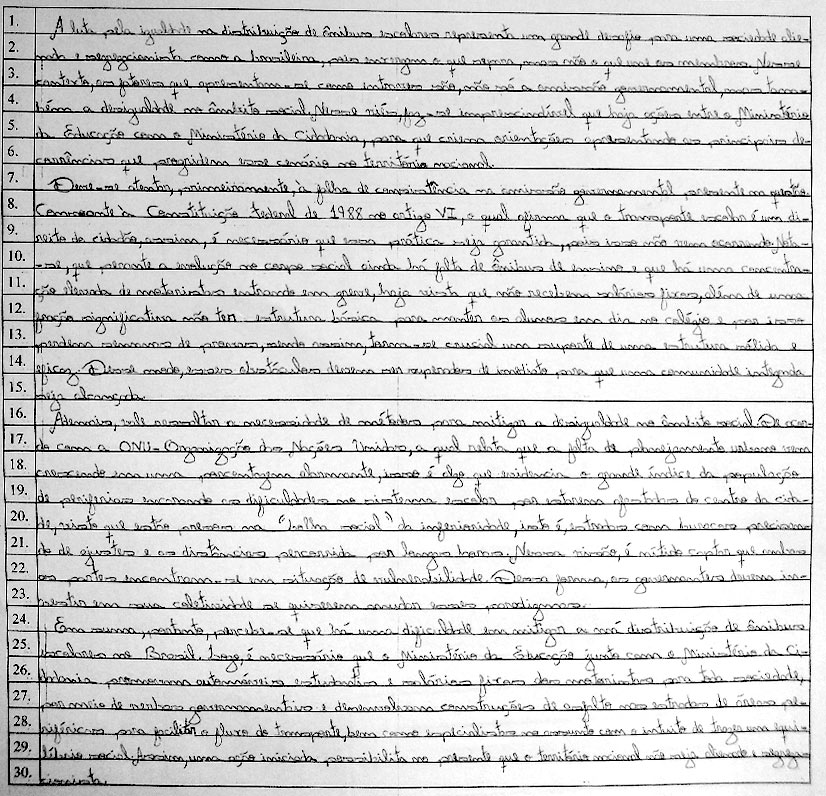 1. A luta pela igualdade na distribuição de ônibus escolares representa um grande desafio para uma sociedade alie-
2. nada e segregacionista como a brasileira, pois enxergam o que separa, mas não o que une os membros. Nesse
3. contexto, os fatores que apresentam-se como intrusos são, não só a omissão governamental, mas tam-
4. bém a desigualdade no âmbito social. Nesse viés, faz-se imprescindível que haja ações entre o Ministério
5. da Educação com o Ministério da Cidadania, para que criem orientações apresentando as principais de-
6. corrências que progridem esse cenário no território nacional.
7. Deve-se atentar, primeiramente, à falha de consistência na omissão governamental, presente na questão.
8. Consoante à Constituição Federal de 1988 no artigo VI, o qual afirma que o transporte escolar é um di-
9. reito do cidadão, assim, é necessário que essa prática seja garantida, pois isso não vem ocorrendo. Nota-
10. -se, que perante a evolução no corpo social ainda há falta de ônibus de ensino e que há uma concentra-
11. ção elevada de motoristas entrando em greve, haja vista que não recebem salários fixos, além de uma
12. fração significativa não ter estrutura básica para manter os alunos em dia no colégio e por isso
13. perdem semanas de provas, sendo assim, torna-se crucial um suporte de uma estrutura sólida e
14. eficaz. Desse modo, esses obstáculos devem ser superados de imediato, para que uma comunidade integrada
15. seja alcançada.
16. Ademais, vale ressaltar a necessidade de métodos para mitigar a desigualdade no âmbito social. De acor-
17. do com a ONU - Organização das Nações Unidas, a qual relata que a falta de planejamento urbano vem
18. crescendo em uma porcentagem alarmante, isso é algo que evidencia o grande índice da população
19. de periferias encarando as dificuldades no sistema escolar por estarem afastados do centro da cida-
20. de, visto que estão presos na "bolha social" da inferioridade, isto é, estradas com buracos precisan-
21. do de ajustes e as distâncias percorrida por longas horas. Nessa visão, é nítido captar que ambas
22. as partes encontram-se em situação de vulnerabilidade. Dessa forma, os governantes devem in-
23. vestir em sua coletividade se quiserem mudar esses paradigmas.
24. Em suma, portanto, percebe-se que há uma dificuldade em mitigar a má distribuição de ônibus
25. escolares no Brasil. Logo, é necessário que o Ministério da Educação junto com o Ministério da Ci-
26. dadania promovam automóveis estudantis e salários fixos dos motoristas para toda sociedade,
27. por meio de verbas governamentais e desenvolvam construções de asfalto nas estradas de áreas pe-
28. riféricas, para facilitar o fluxo do transporte, bem como especialistas no assunto com o intuito de trazer um equi-
29. líbrio social. Assim, uma ação iniciada possibilita no presente que o território nacional não seja alienado e segrega-
30. cionista.